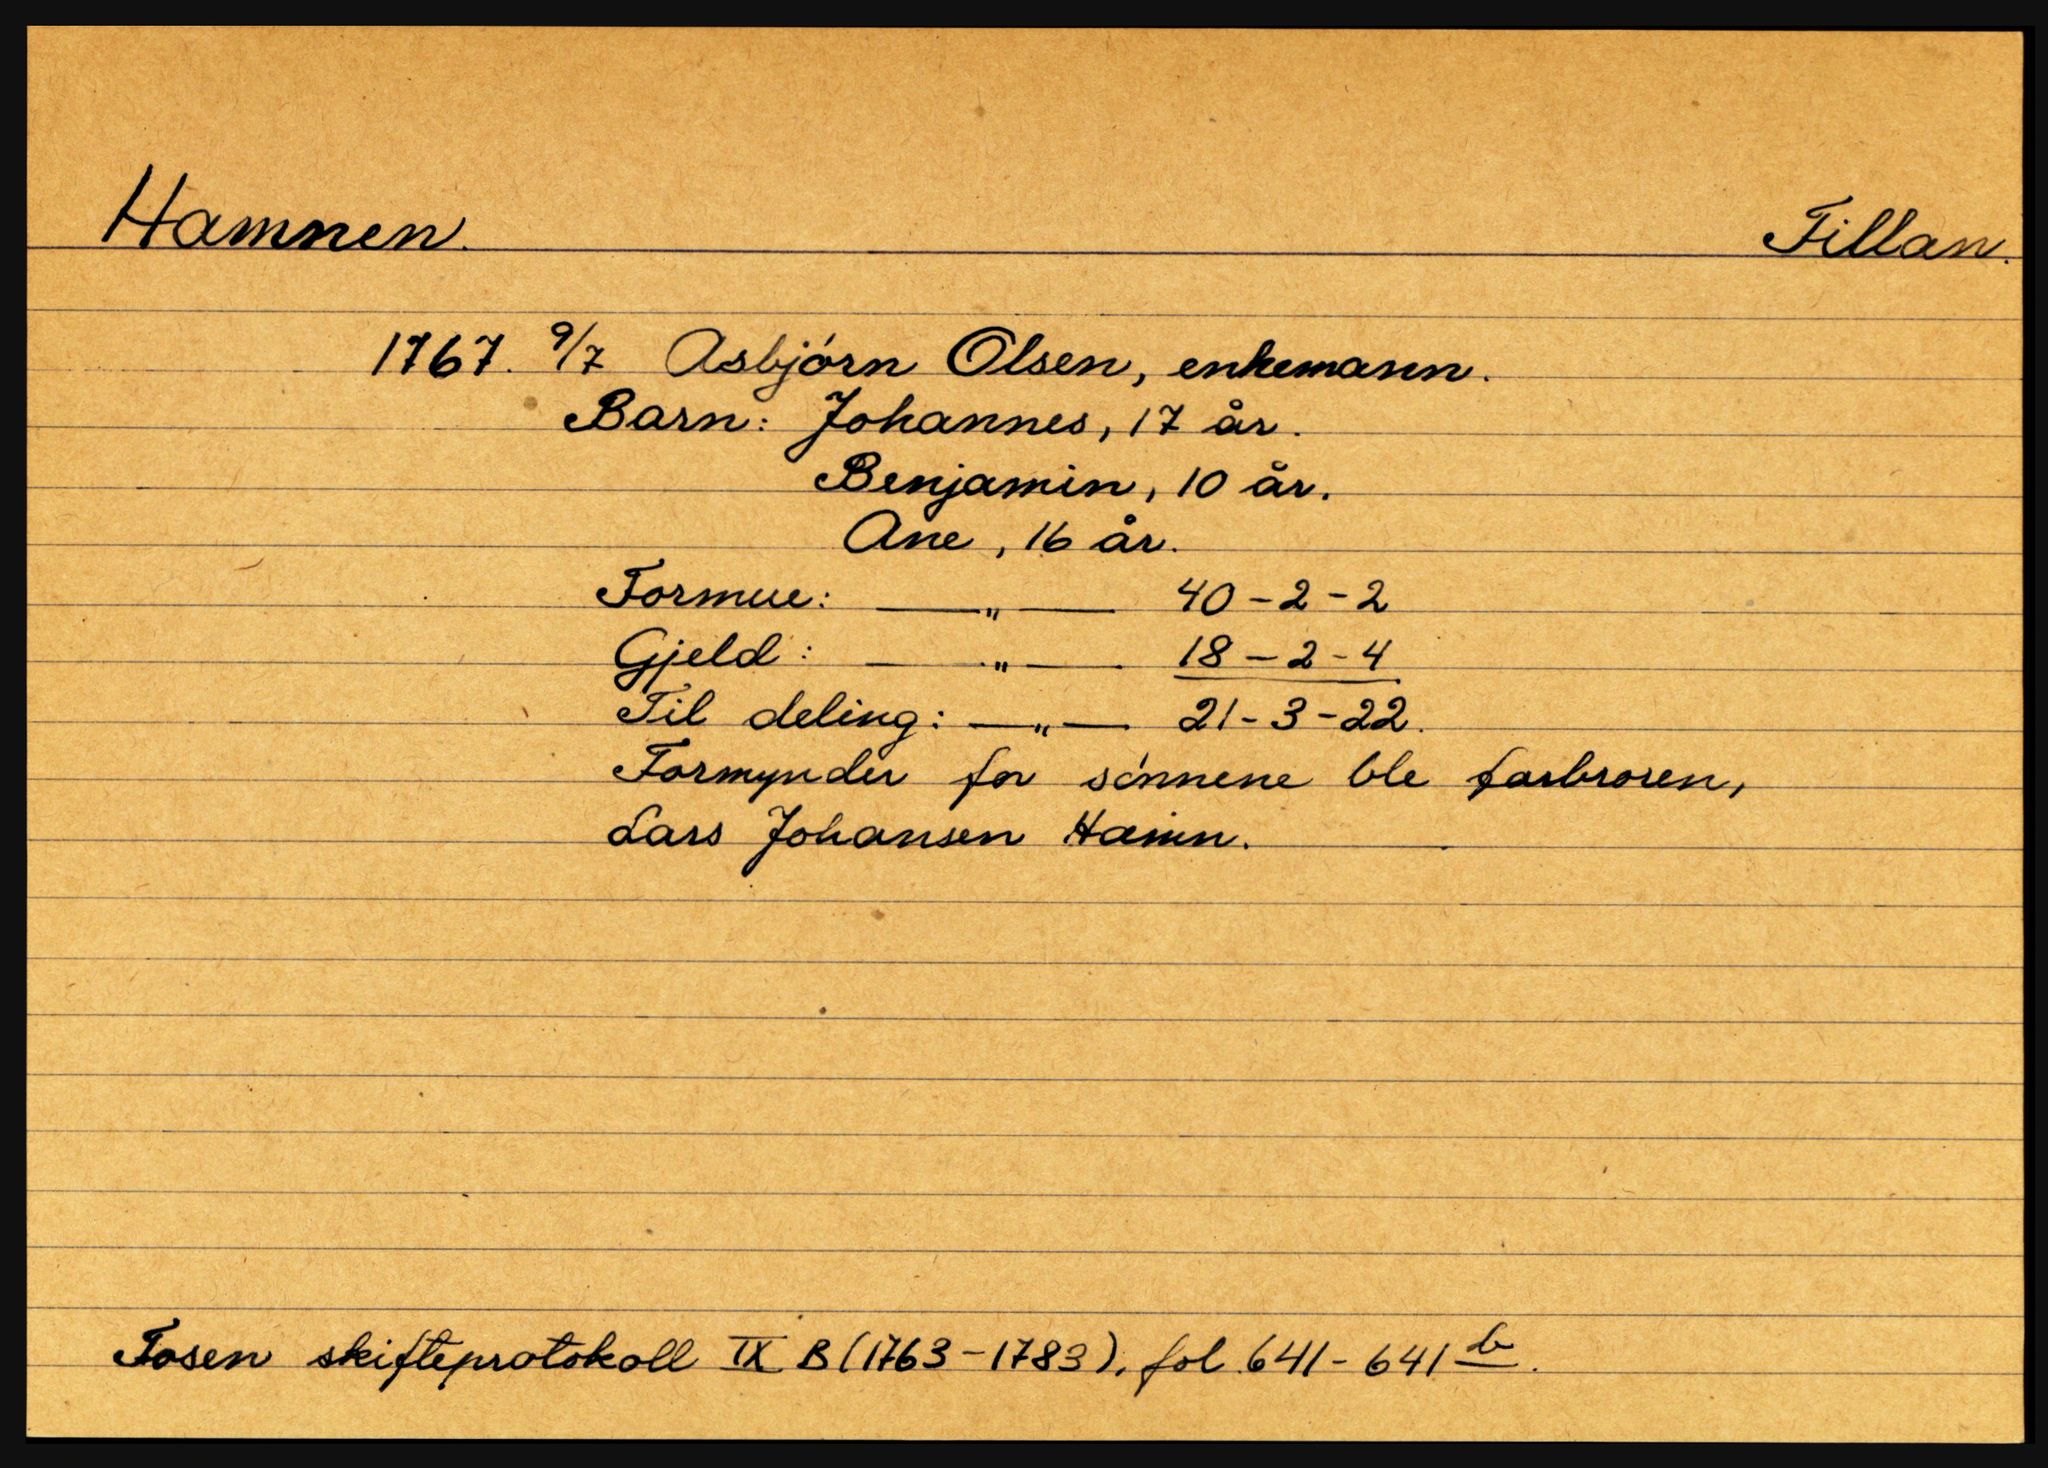 Hamnen. Fillan.
1767. 9/7 Asbjórn Olsen, enkemann.
Barn: Johannes, 17 år.
Benjamin, 10 år.
Ane, 16 år.
Formue: —„— 40-2-2
Gjeld: —„— 18-2-4
Til deling: —„— 21-3-22.
Formynder for sónnene ble farbroren,
Lars Johansen Hamn.
Fosen skifteprotokoll IX B (1763-1783), fol. 641-641 b.